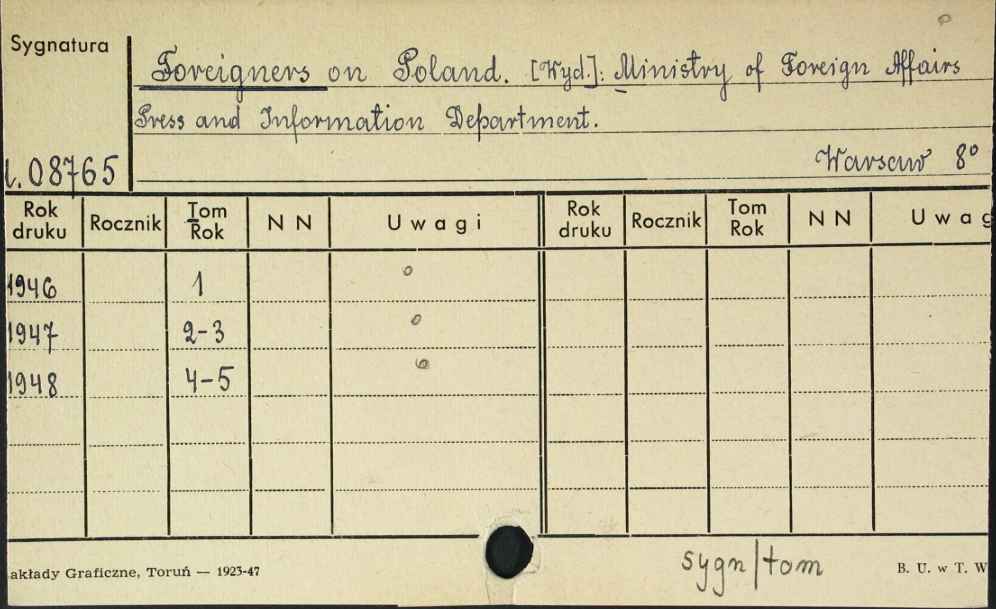 Sygnatura
Foreigners on Poland. [Wyd.]: Ministry of Foreign Affairs
Press and Information Department.
Warsaw 8°
l.08765
Rok druku Rocznik Tom Rok N N Uwagi Rok druku Rocznik Tom Rok N N Uwag
1946 1
1947 2-3
1948 4-5
sygn/tom
akłady Graficzne, Toruń — 1923-47 B. U. w T. W